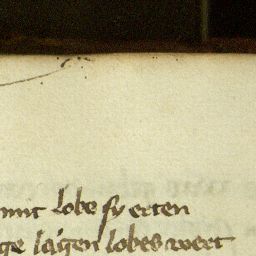 mit lobe sy erten
ge sagen lobes wert